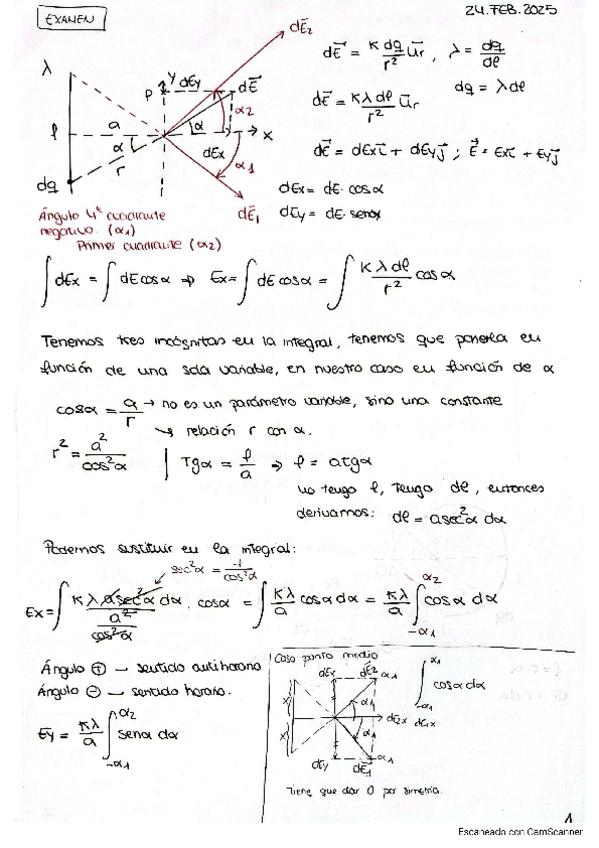 EXAMEN
24.FEB.2025
dE⃗₂
dE⃗ = K dq/r² u⃗r , λ = dq/dl
dq = λdl
dE⃗ = Kλdl/r² u⃗r
dE⃗ = dExi⃗ + dEyj⃗ ; E⃗ = Exi⃗ + Eyj⃗
dEx = dE · cosα
dEy = dE · senα
λ
P
y
dEy
dE⃗
α2
l
a
α
α
x
r
dEx
α1
dq
dE⃗₁
Ángulo 4º cuadrante
negativo. (α1)
Primer cuadrante (α2)
∫dEx = ∫dE cosα ⇒ Ex = ∫dE cosα = ∫ Kλdl/r² cosα
Tenemos tres incógnitas en la integral, tenemos que ponerla en
función de una sola variable, en nuestro caso en función de α
cosα = a/r → no es un parámetro variable, sino una constante
↳ relación r con α.
r² = a²/cos²α | Tgα = l/a ⇒ l = atgα
no tengo l, Tengo dl, entonces
derivamos: dl = asec²α dα
Podemos sustituir en la integral:
sec²α = 1/cos²α
Ex = ∫ Kλ asec²α dα/(a²/cos²α) · cosα = ∫ Kλ/a cosα dα = Kλ/a ∫_{-α1}^{α2} cosα dα
Ángulo ⊕ — sentido antihorario
Ángulo ⊖ — sentido horario.
Ey = Kλ/a ∫_{-α1}^{α2} senα dα
Caso punto medio
dEx
dE⃗2
α1
∫_{-α1}^{α1} cosα dα
x
α1
dE2x
dE1x
x
α1
dEy
dE⃗1
α1
Tiene que dar 0 por simetría.
1
Escaneado con CamScanner